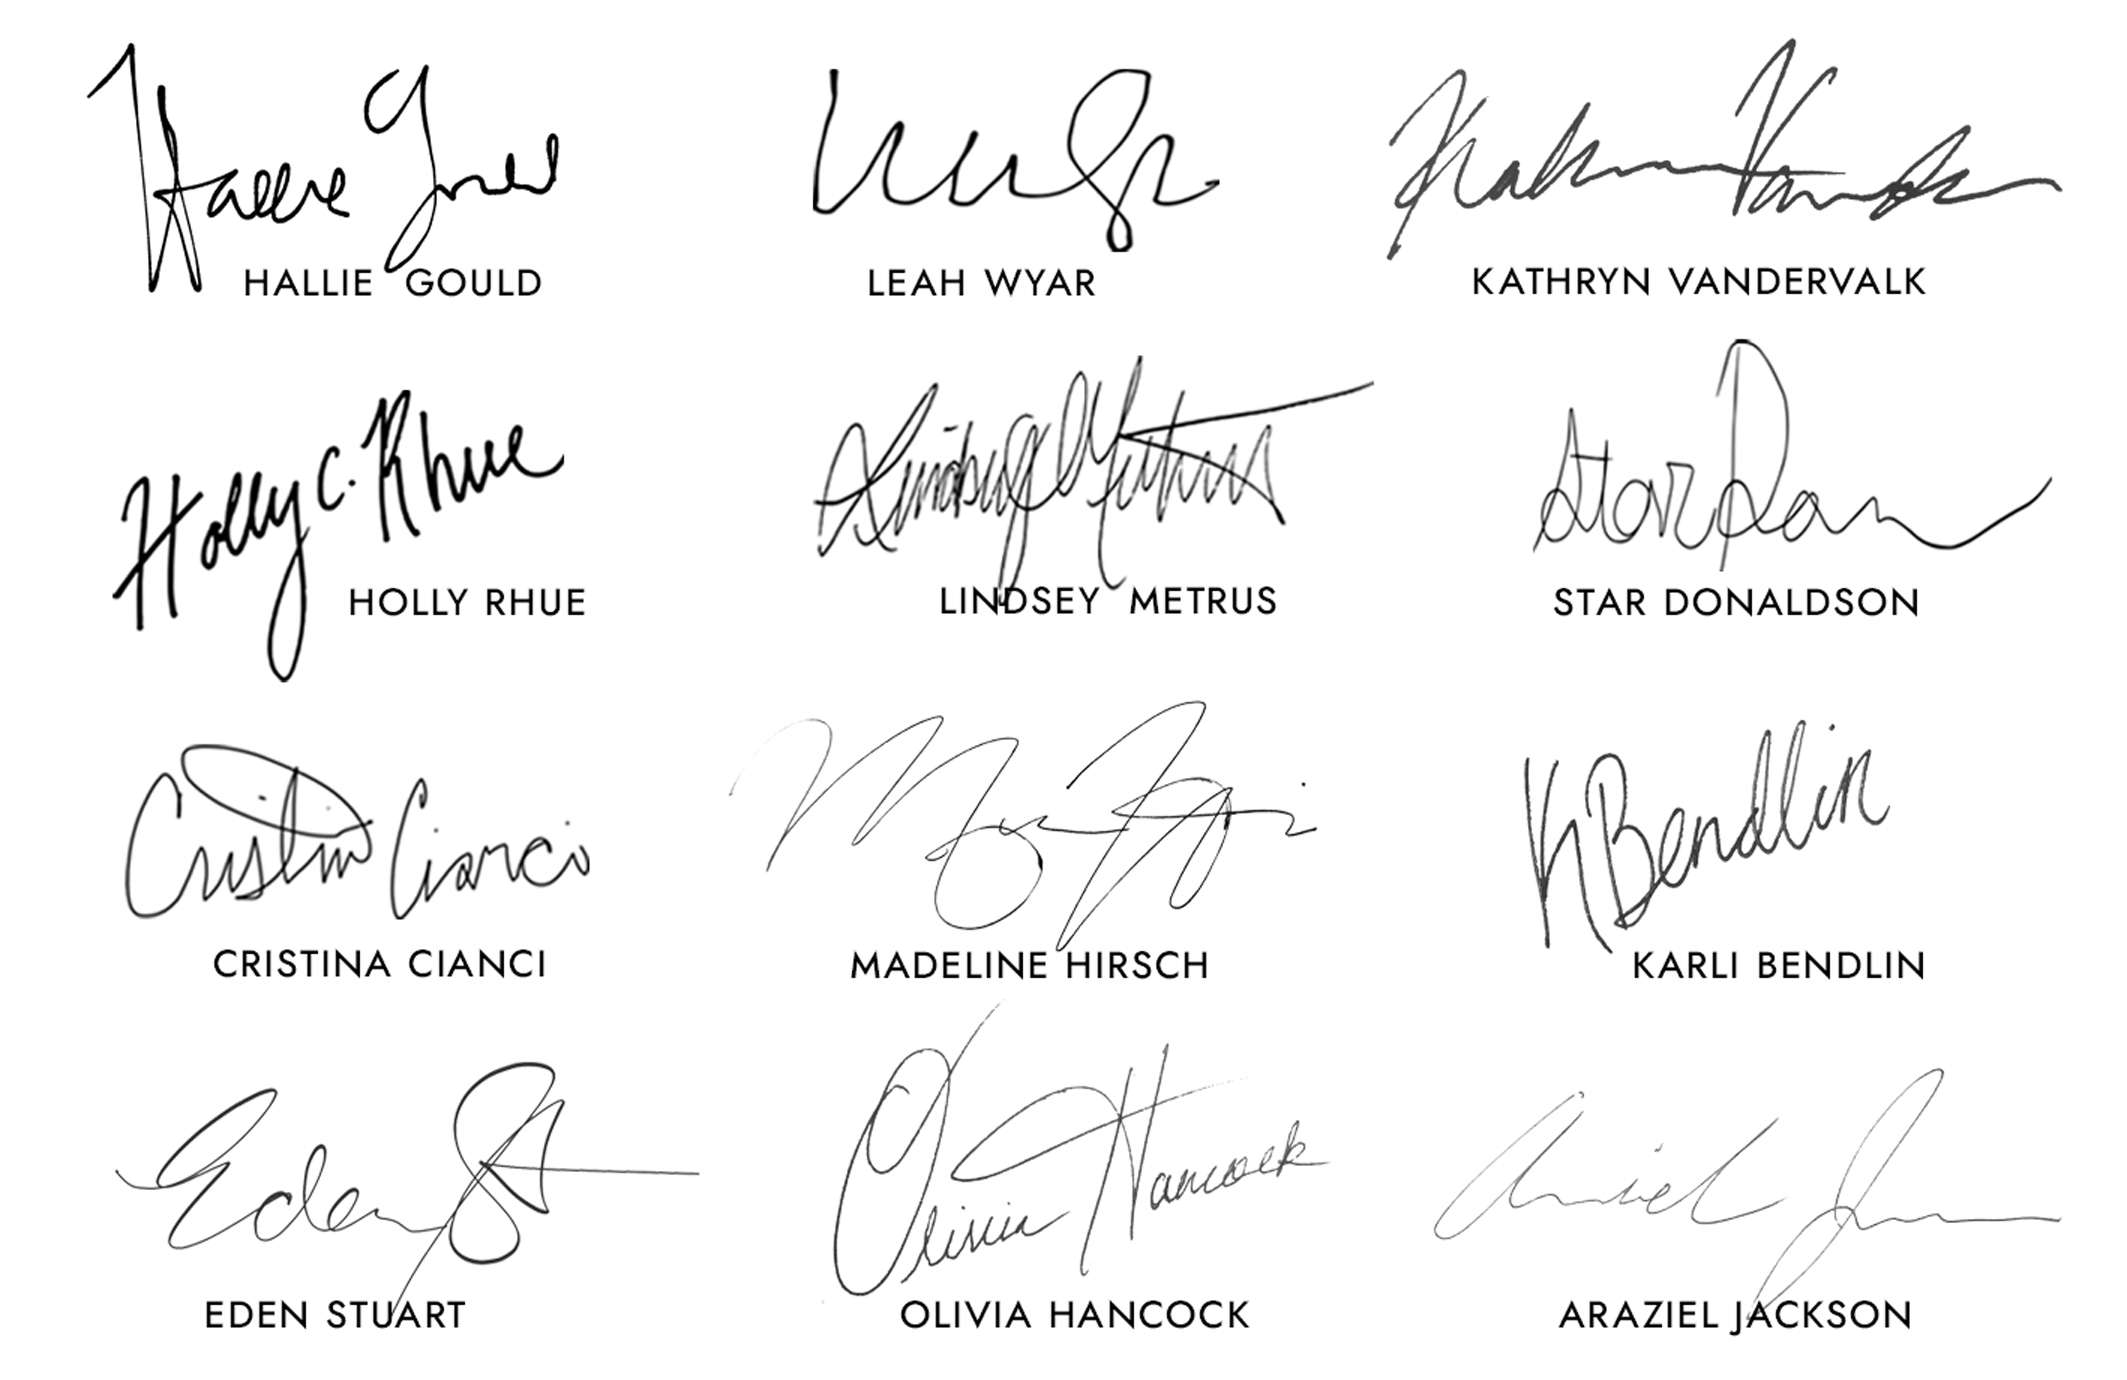 Hallie Gould
HALLIE GOULD
LEAH WYAR
KATHRYN VANDERVALK
Holly C. Rhue
HOLLY RHUE
Lindsey Metrus
LINDSEY METRUS
Star
STAR DONALDSON
Cristina Cianci
CRISTINA CIANCI
MADELINE HIRSCH
K Bendlin
KARLI BENDLIN
Eden St
EDEN STUART
Olivia Hancock
OLIVIA HANCOCK
ARAZIEL JACKSON